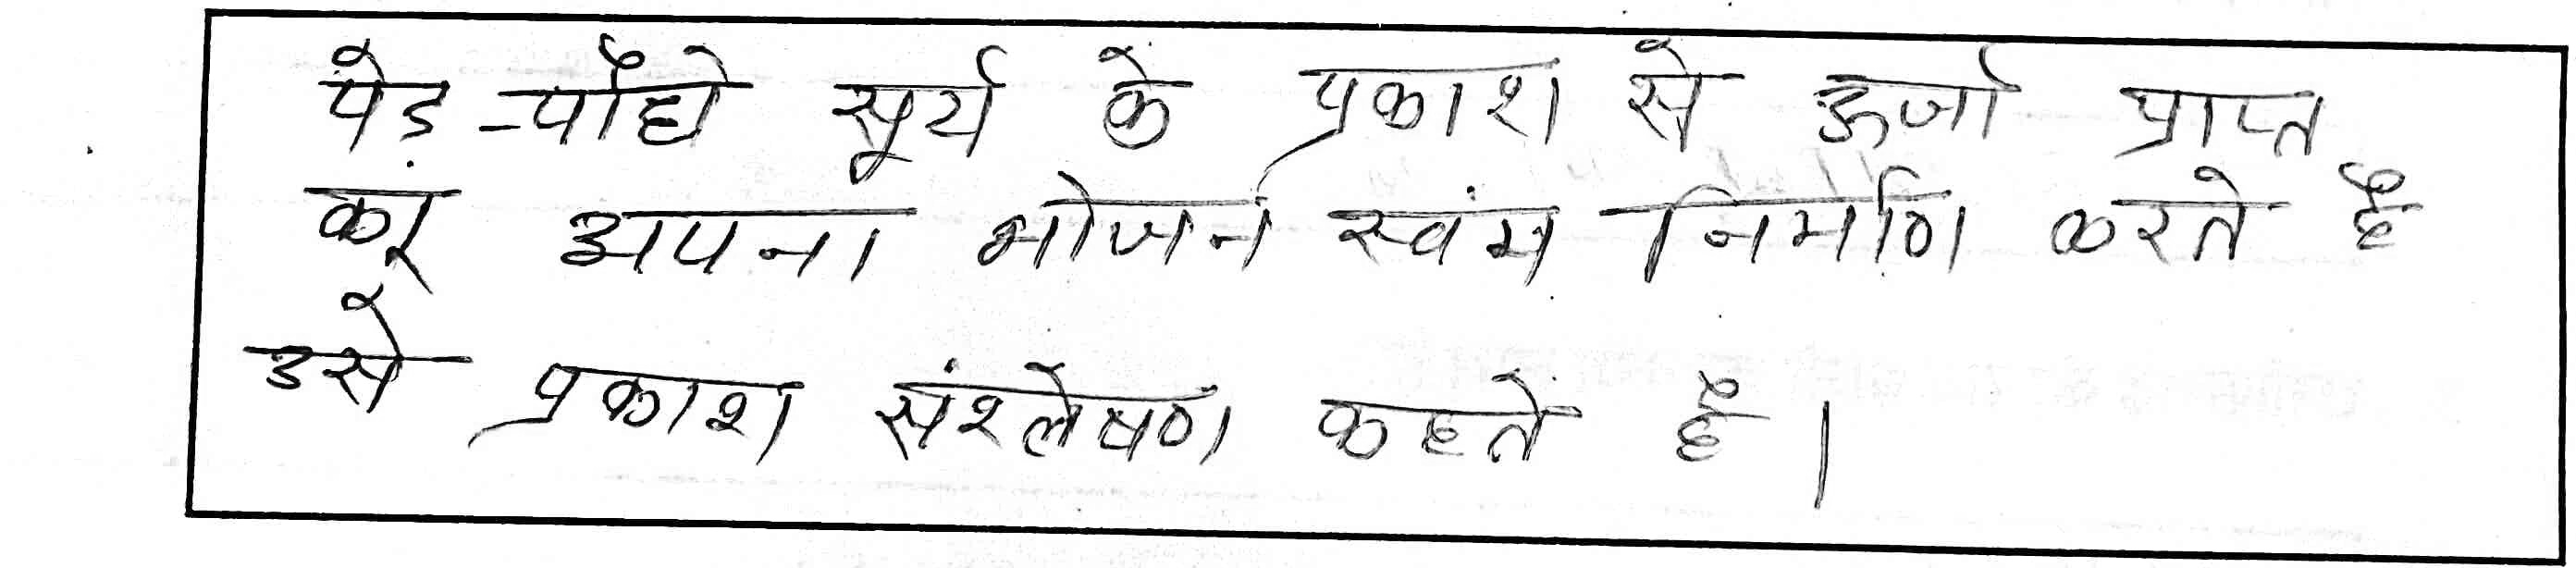 पेड-पौधे सूर्य के प्रकाश से ऊर्जा प्राप्त
कर अपना भोजन स्वंम निर्माण करते है
उसे प्रकाश संश्लेषण कहते है।